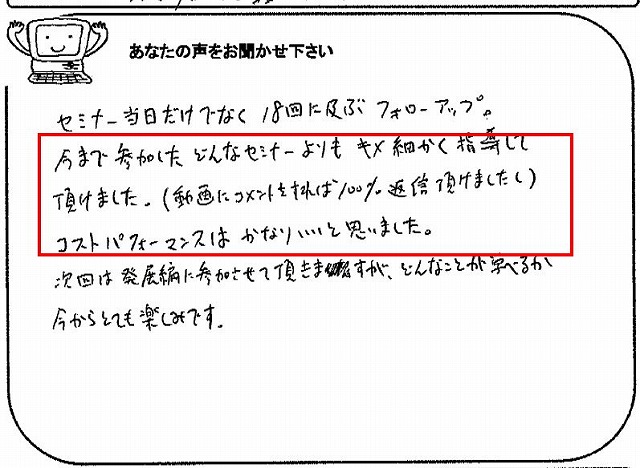 あなたの声をお聞かせ下さい
セミナー当日だけでなく 18回に及ぶ フォローアップ。
今まで参加した どんなセミナーよりも キメ細かく指導して
頂けました。(動画にコメントをすれば100%返信頂けましたし)
コストパフォーマンスは かなりいいと思いました。
次回は発展編に参加させて頂きますが、どんなことが学べるか
今からとても楽しみです。